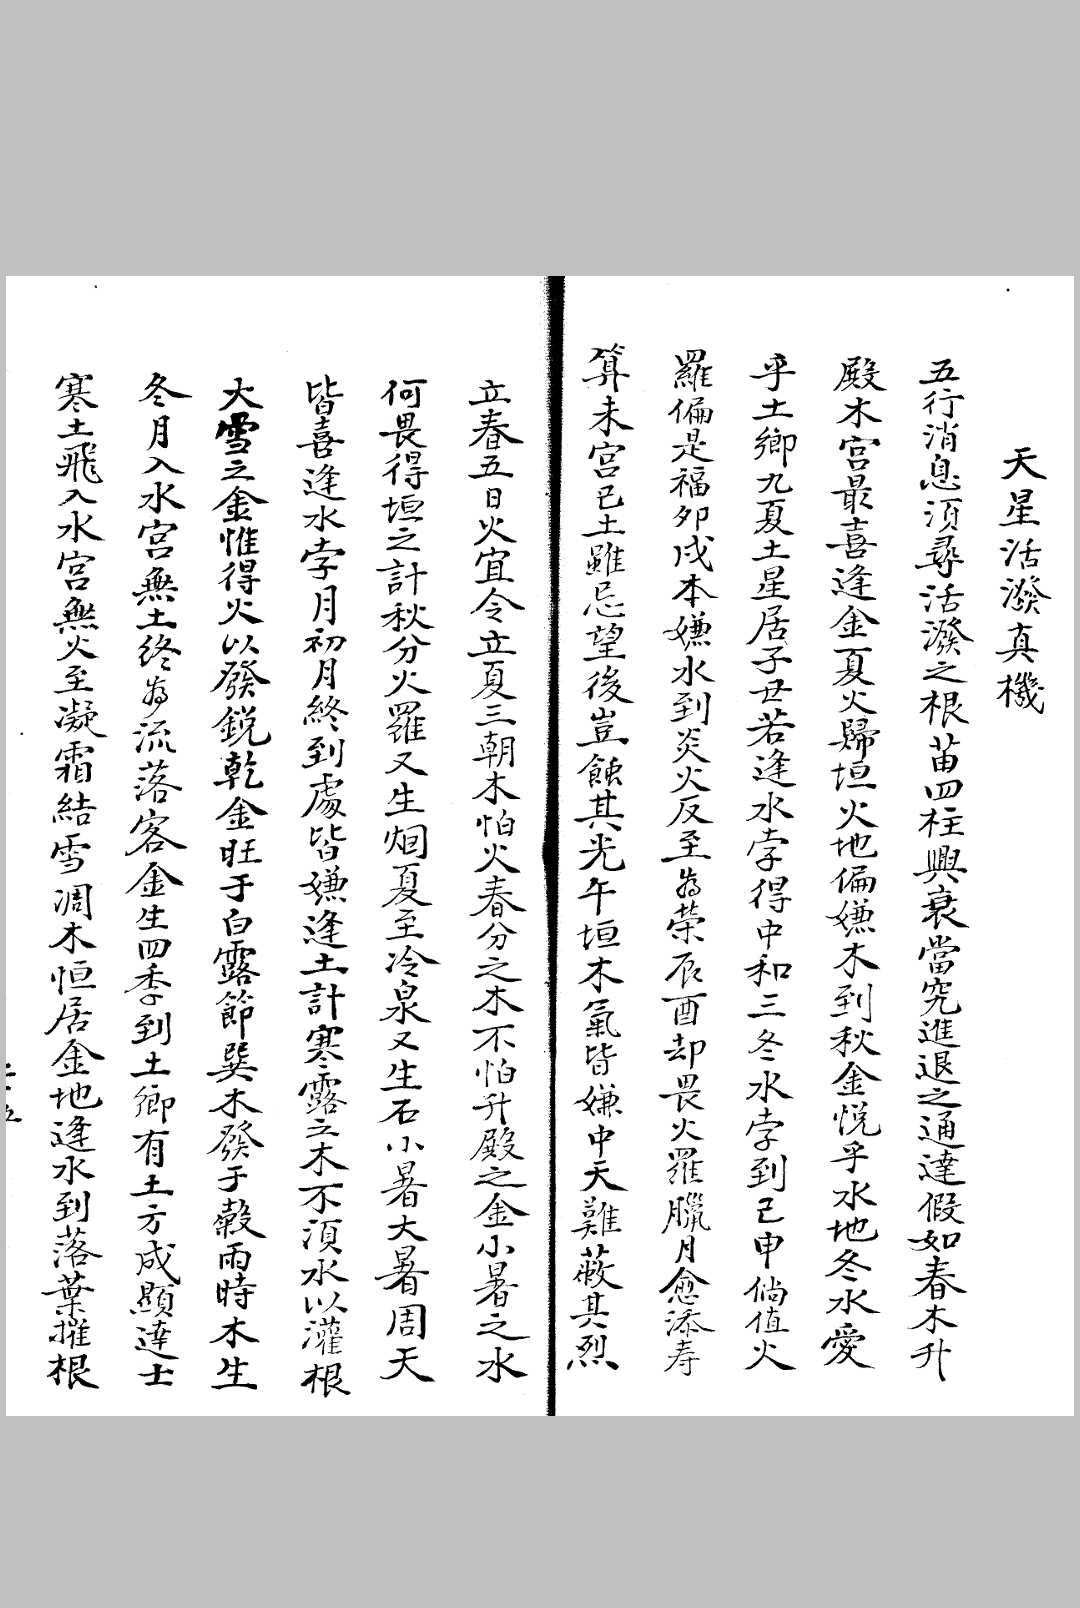 天星活潑真機
五行消息須尋活潑之根苗四柱興衰當究進退之通達假如春木升
殿木宮最喜逢金夏火歸垣火地偏嫌木到秋金悅乎水地冬水愛
乎土鄉九夏土星居子丗若逢水孛得中和三冬水孛到巳申倘值火
羅偏是福卯戌本嫌水到炎火反至為榮辰酉却畏火羅臘月愈添寿
算未宮巳土雖忌望後豈蝕其光午垣木氣皆嫌中天難蔽其烈
立春五日火宜令立夏三朝木怕火春分之木不怕升殿之金小暑之水
何畏得垣之計秋分火羅又生烟夏至冷泉又生石小暑大暑周天
皆喜逢水孛月初月終到處皆嫌逢土計寒露之木不須水以灌根
大雪之金惟得火以發銳乾金旺于白露節巽木發于穀雨時木生
冬月入水宮無土終為流落客金生四季到土鄉有土方成顯達士
寒土飛入水宮無火至凝霜結雪凋木恒居金地逢水到落葉摧根